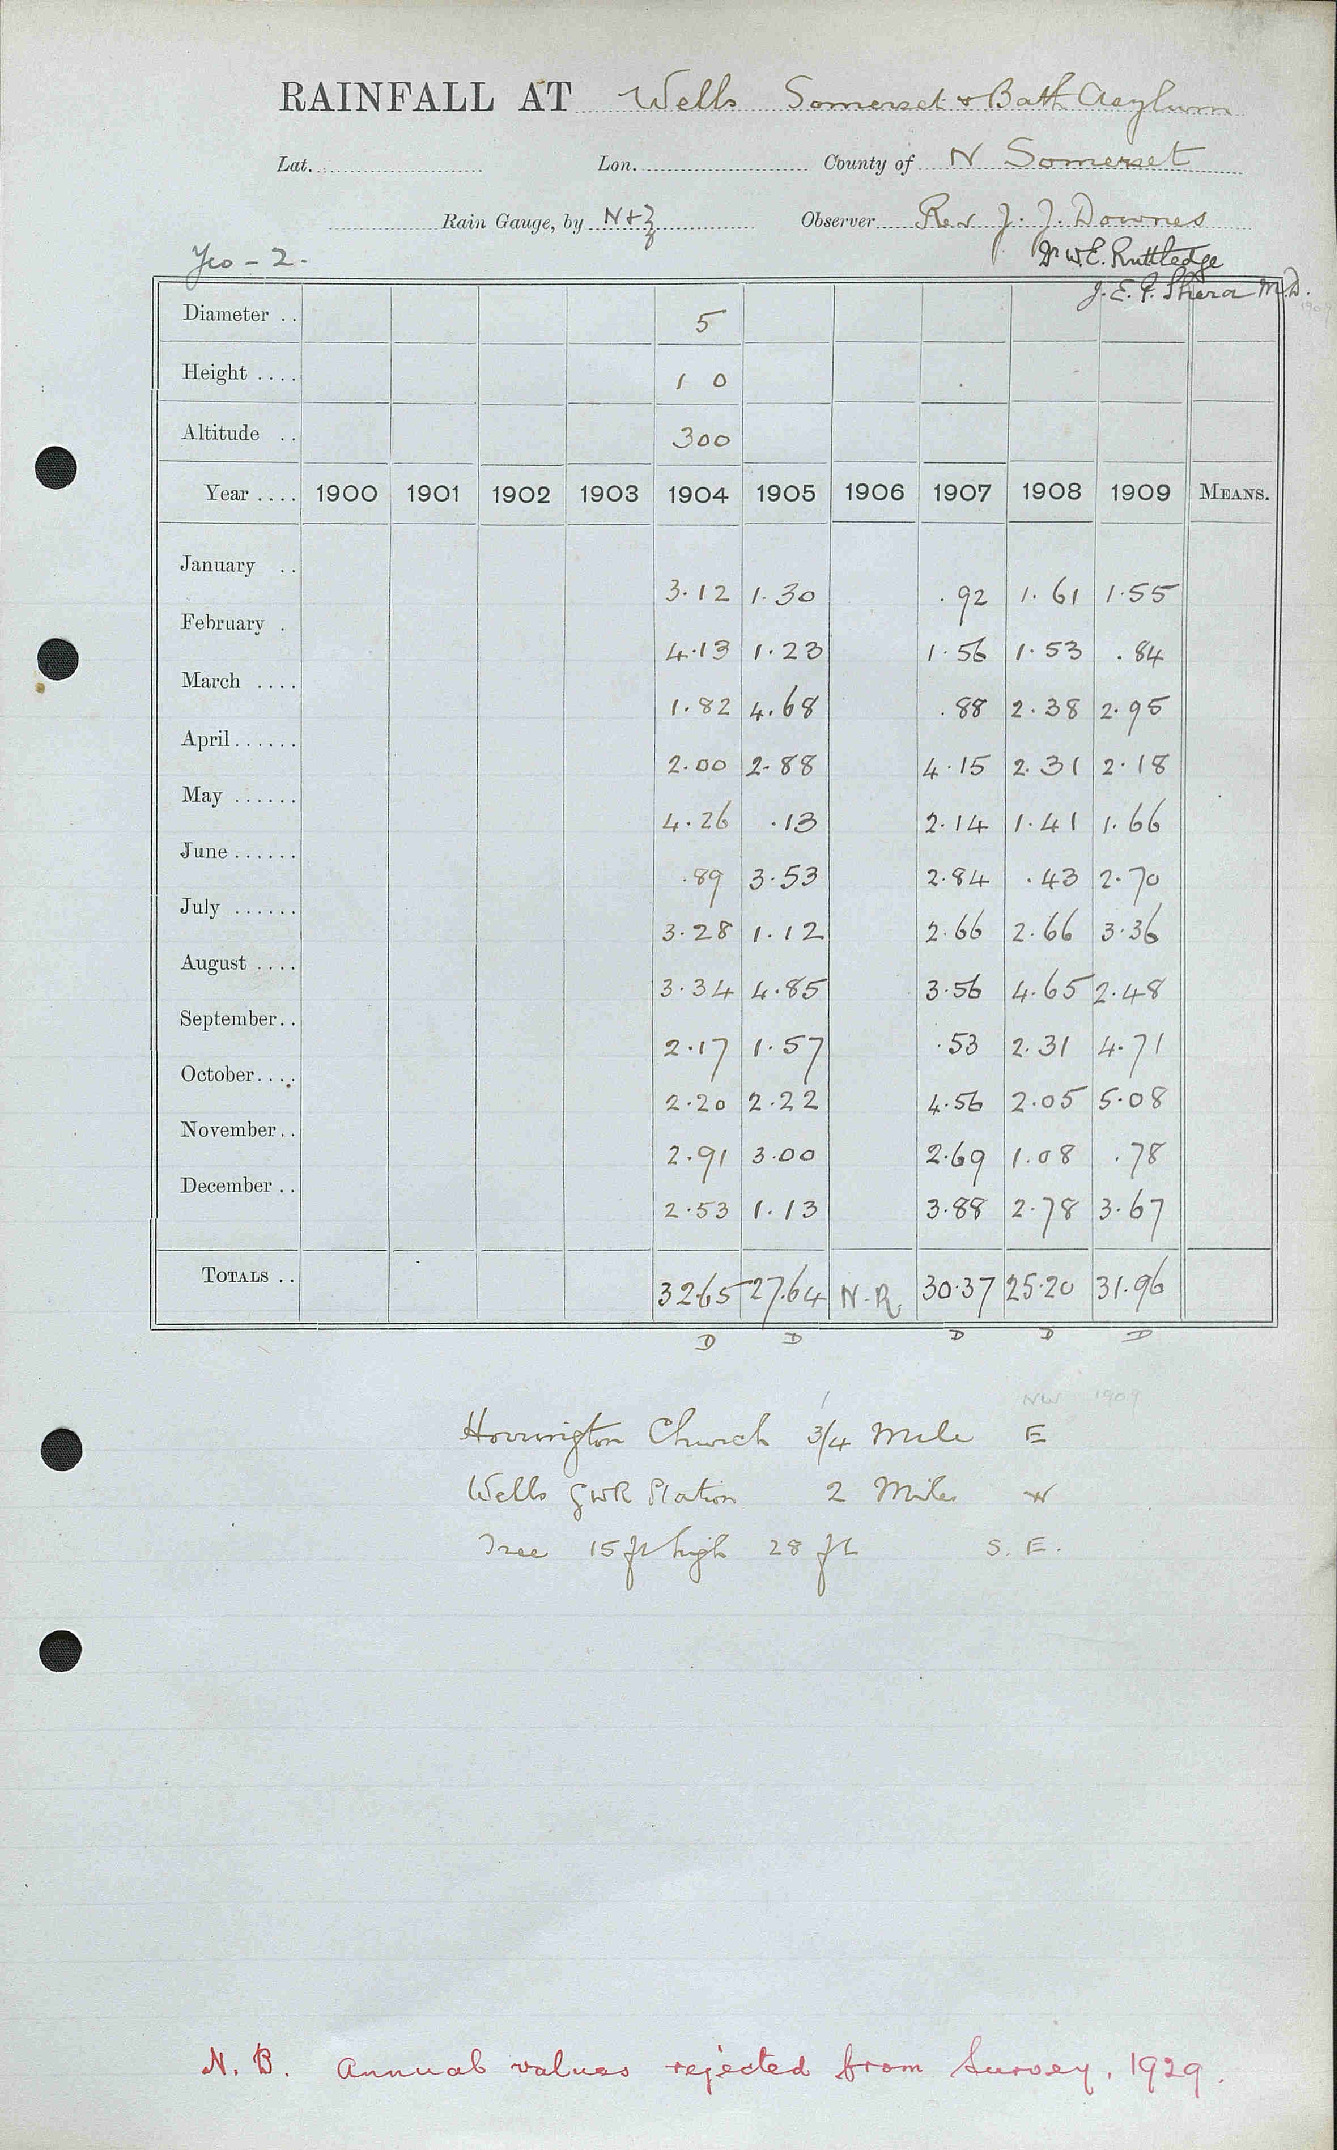 RAINFALL AT Wells Somerset & Bath Asylum
Lat. Lon. County of N Somerset
Rain Gauge, by N & Z Observer Rev J. J. Downes
Yeo - 2. Dr W.E. Ruttledge
J. E. P. Shera M.D.
1909
Diameter .. 5
Height .... 1 0
Altitude .. 300
Year .... 1900 1901 1902 1903 1904 1905 1906 1907 1908 1909 MEANS.
January .. 3.12 1.30 .92 1.61 1.55
February . 4.13 1.23 1.56 1.53 .84
March .... 1.82 4.68 .88 2.38 2.95
April...... 2.00 2.88 4.15 2.31 2.18
May ...... 4.26 .13 2.14 1.41 1.66
June...... .89 3.53 2.84 .43 2.70
July ...... 3.28 1.12 2.66 2.66 3.36
August .... 3.34 4.85 3.56 4.65 2.48
September.. 2.17 1.57 .53 2.31 4.71
October.... 2.20 2.22 4.56 2.05 5.08
November.. 2.91 3.00 2.69 1.08 .78
December .. 2.53 1.13 3.88 2.78 3.67
TOTALS .. 32.65 27.64 N.R. 30.37 25.20 31.96
D D D D D
NW 1909
Horrington Church 3/4 Mile E
Wells GWR Station 2 Miles W
Tree 15 ft high 28 ft S. E.
N. B. Annual values rejected from Survey, 1929.